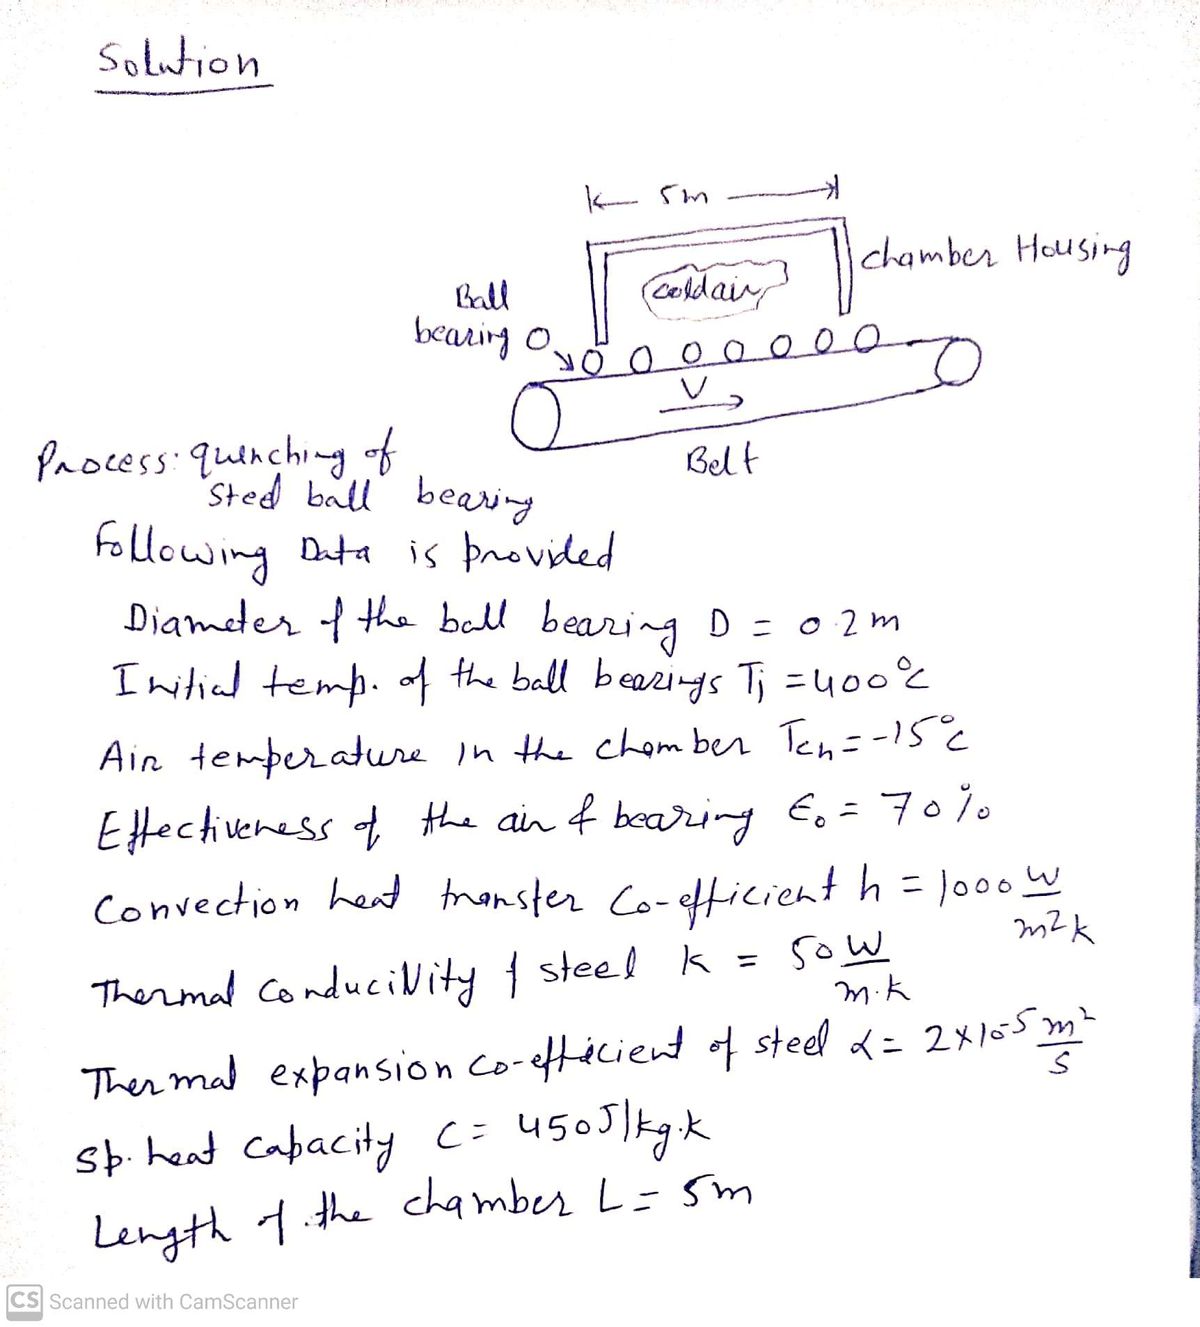 Solution
5m
chamber Housing
cold air
Ball
bearing
V
Belt
Process: quenching of
Steel ball bearing
Following Data is provided
Diameter of the ball bearing D = 0.2m
Initial temp. of the ball bearings Ti = 400°C
Air temperature in the chamber Tch = -15°C
Effectiveness of the air & bearing ϵ₀ = 70%
Convection heat transfer Co-efficient h = 1000 W/m²k
Thermal Conducivity of steel k = 50 W/m.k
Thermal expansion co-efficient of steel α = 2×10⁻⁵ m²/s
Sp. heat capacity C = 450J/kg.k
Length of the chamber L = 5m
CS Scanned with CamScanner